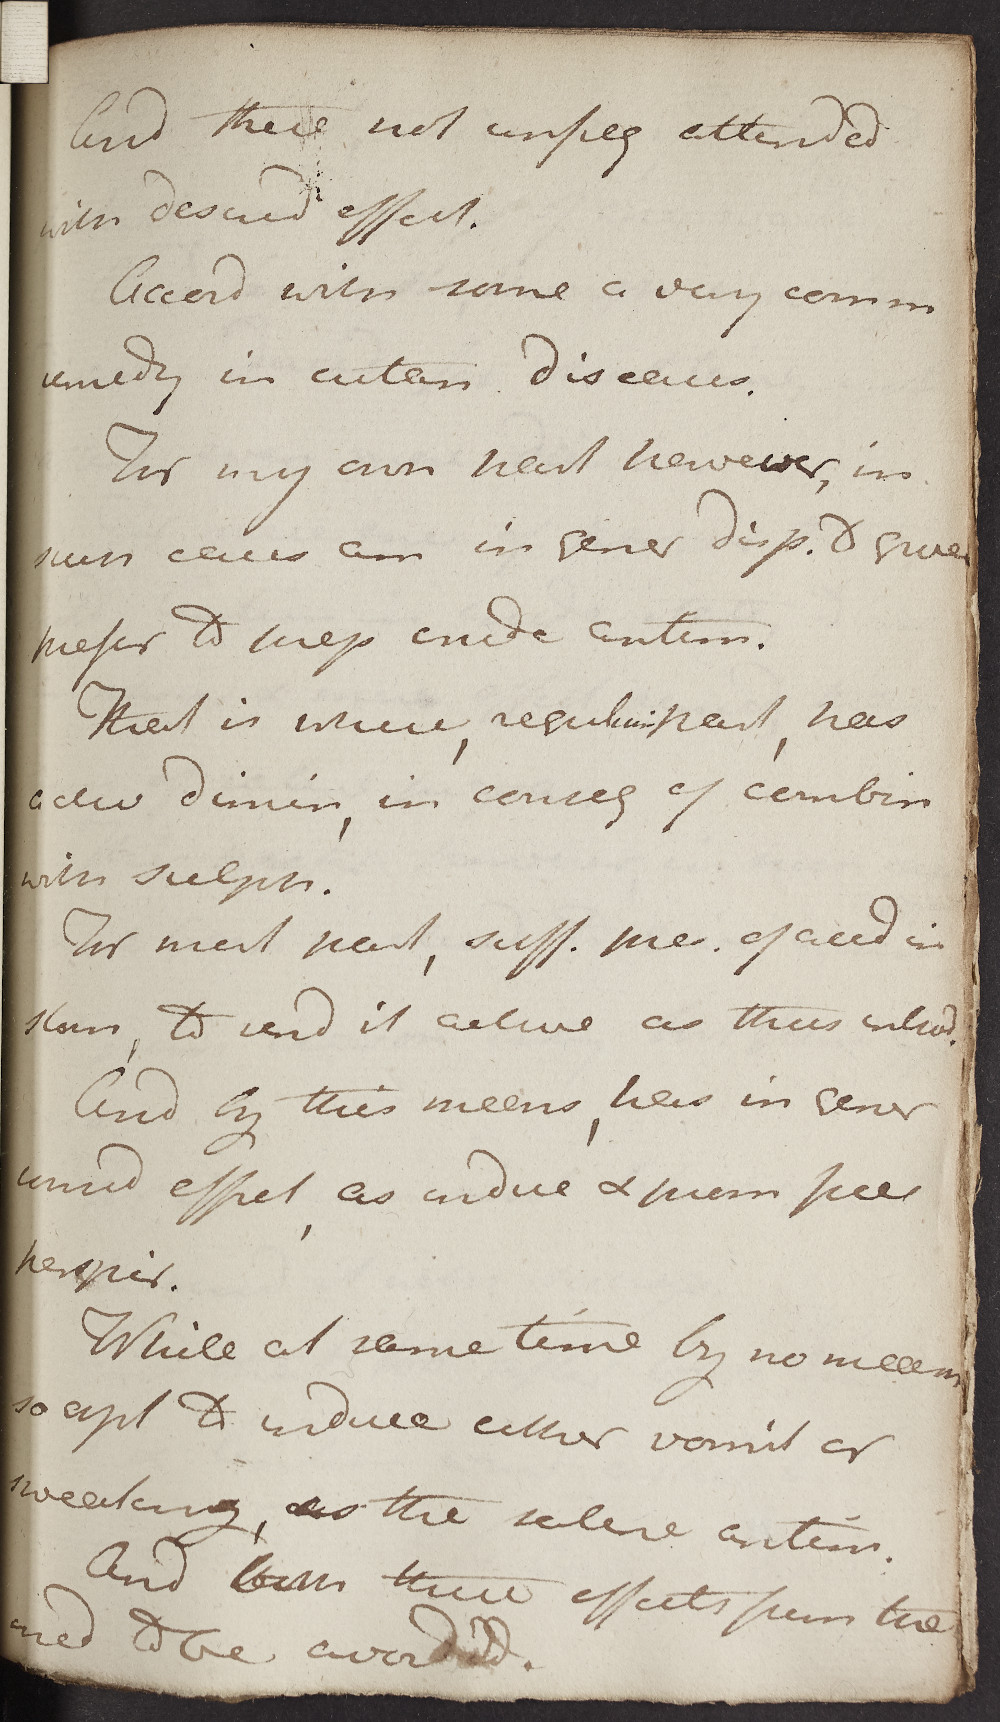 And these not unfreq attended
with desired effect.
Accord with some a very comm
remedy in cutan diseases.
For my own part however, in
such cases am in gener disp. to give
prefer to prep crude antim.
That is where, regulin part, has
activ dimin, in conseq of combin
with sulph.
For most part, suff. pre. of acid in
stom, to rend it active as thus introd.
And by this means, has in gener
effect, as induce & prom free
perspir.
While at same time by no means
so apt to induce either vomit or
sweating, as the saline antim.
And both these effects from the
med to be avoided.